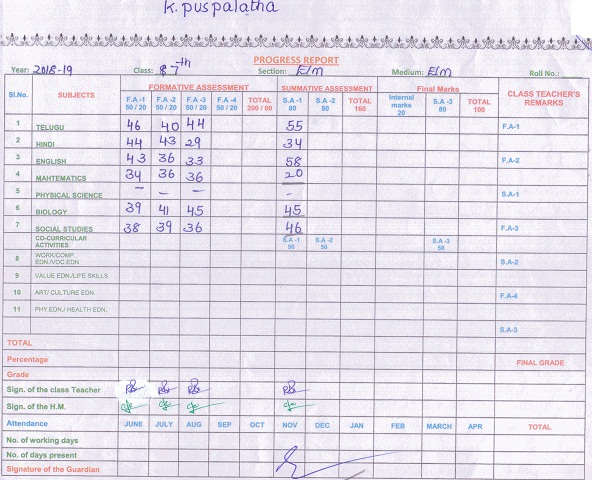 K. puspalatha
PROGRESS REPORT
Year: 2018-19 Class: 7th Section: E/m Medium: E/m Roll No.:
Sl.No. SUBJECTS FORMATIVE ASSESSMENT SUMMATIVE ASSESSMENT Final Marks CLASS TEACHER'S REMARKS
F.A -1 50 / 20 F.A -2 50 / 20 F.A -3 50 / 20 F.A -4 50 / 20 TOTAL 200 / 80 S.A -1 80 S.A -2 80 TOTAL 160 Internal marks 20 S.A -3 80 TOTAL 100
1 TELUGU 46 40 44 55 F.A-1
2 HINDI 44 43 29 34
3 ENGLISH 43 36 33 58 F.A-2
4 MAHTEMATICS 34 36 36 20
5 PHYSICAL SCIENCE - - - - S.A-1
6 BIOLOGY 39 41 45 45
7 SOCIAL STUDIES 38 39 36 46 F.A-3
CO-CURRICULAR ACTIVITIES S.A -1 50 S.A -2 50 S.A -3 50
8 WORK/COMP. EDN./VOC.EDN S.A-2
9 VALUE EDN./LIFE SKILLS
10 ART/ CULTURE EDN. F.A-4
11 PHY.EDN./ HEALTH EDN.
S.A-3
TOTAL
Percentage FINAL GRADE
Grade
Sign. of the class Teacher
Sign. of the H.M.
Attendance JUNE JULY AUG SEP OCT NOV DEC JAN FEB MARCH APR TOTAL
No. of working days
No. of days present
Signature of the Guardian